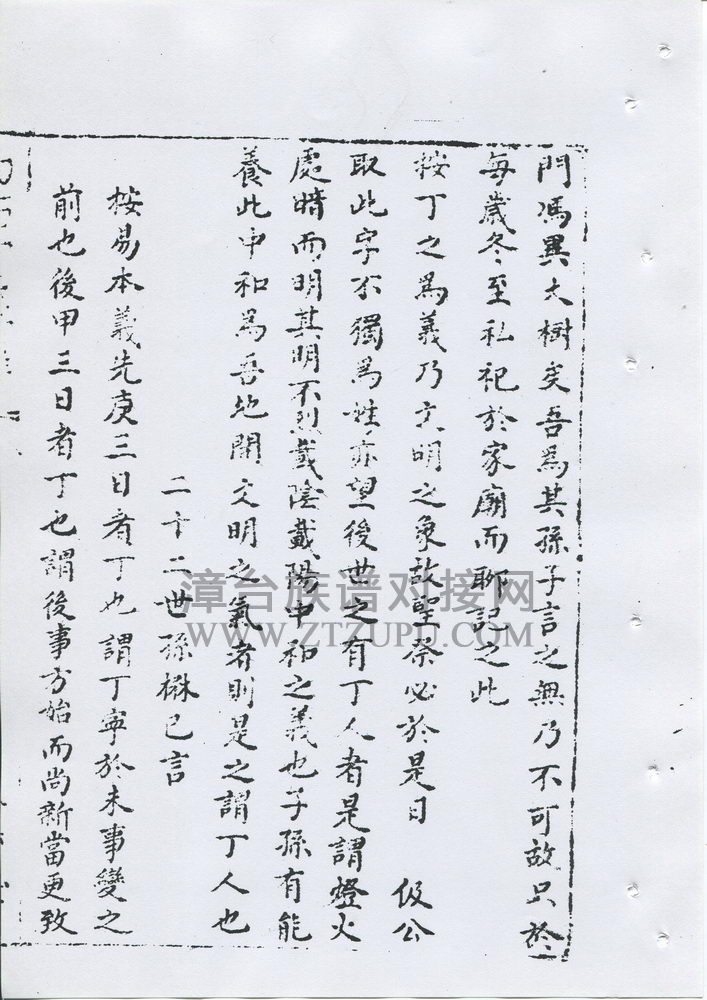 門馮異大樹矣吾為其孫子言之無乃不可故只於
每歲冬至私祀於家廟而聊記之此
按丁之為義乃文明之象故聖祭必於是日 仮公
取此字不獨為姓亦望後世之有丁人者是謂燈火
處暗而明其明不烈戴陰戴陽中和之義也子孫有能
養此中和為吾地開文明之氣者則是之謂丁人也
二十二世孫楙已言
按易本義先庚三日者丁也謂丁寧於未事變之
前也後甲三日者丁也謂後事方始而尚新當更致
漳台族谱对接网
WWW.ZTZUPU.COM